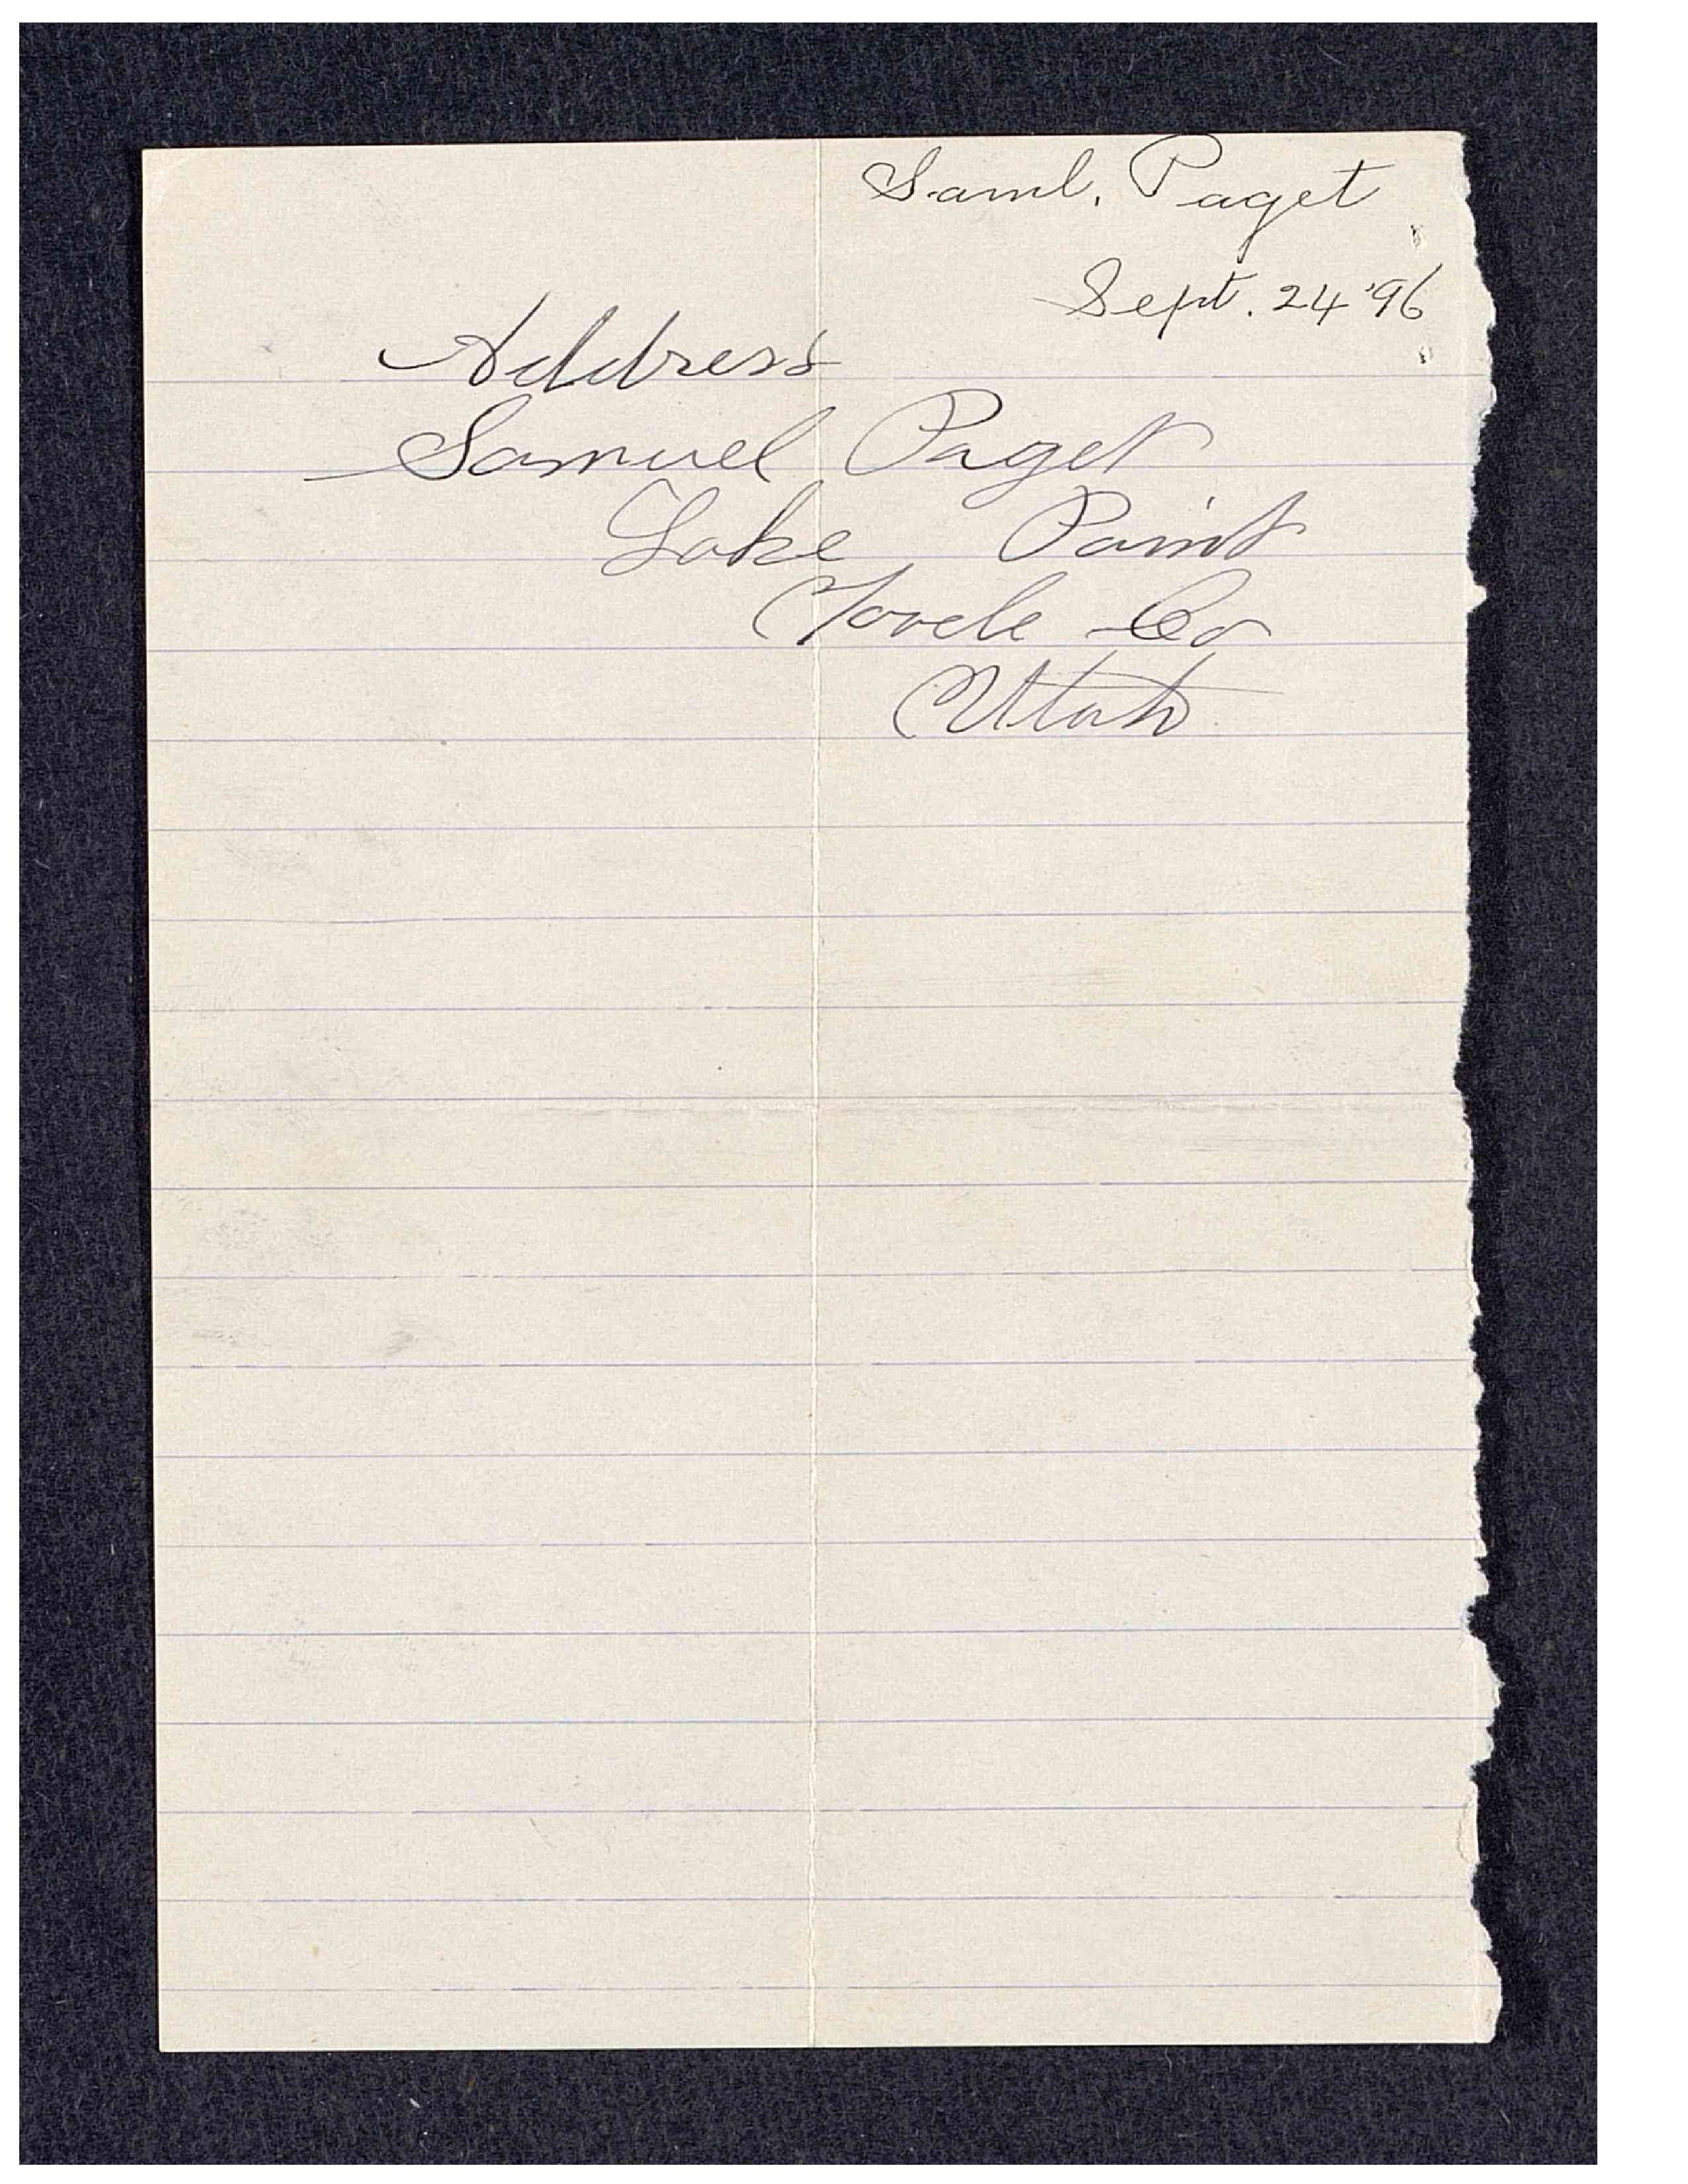 Saml. Paget
Sept. 24 '96
Address
Samuel Paget
Lake Point
Tooele Co
Utah